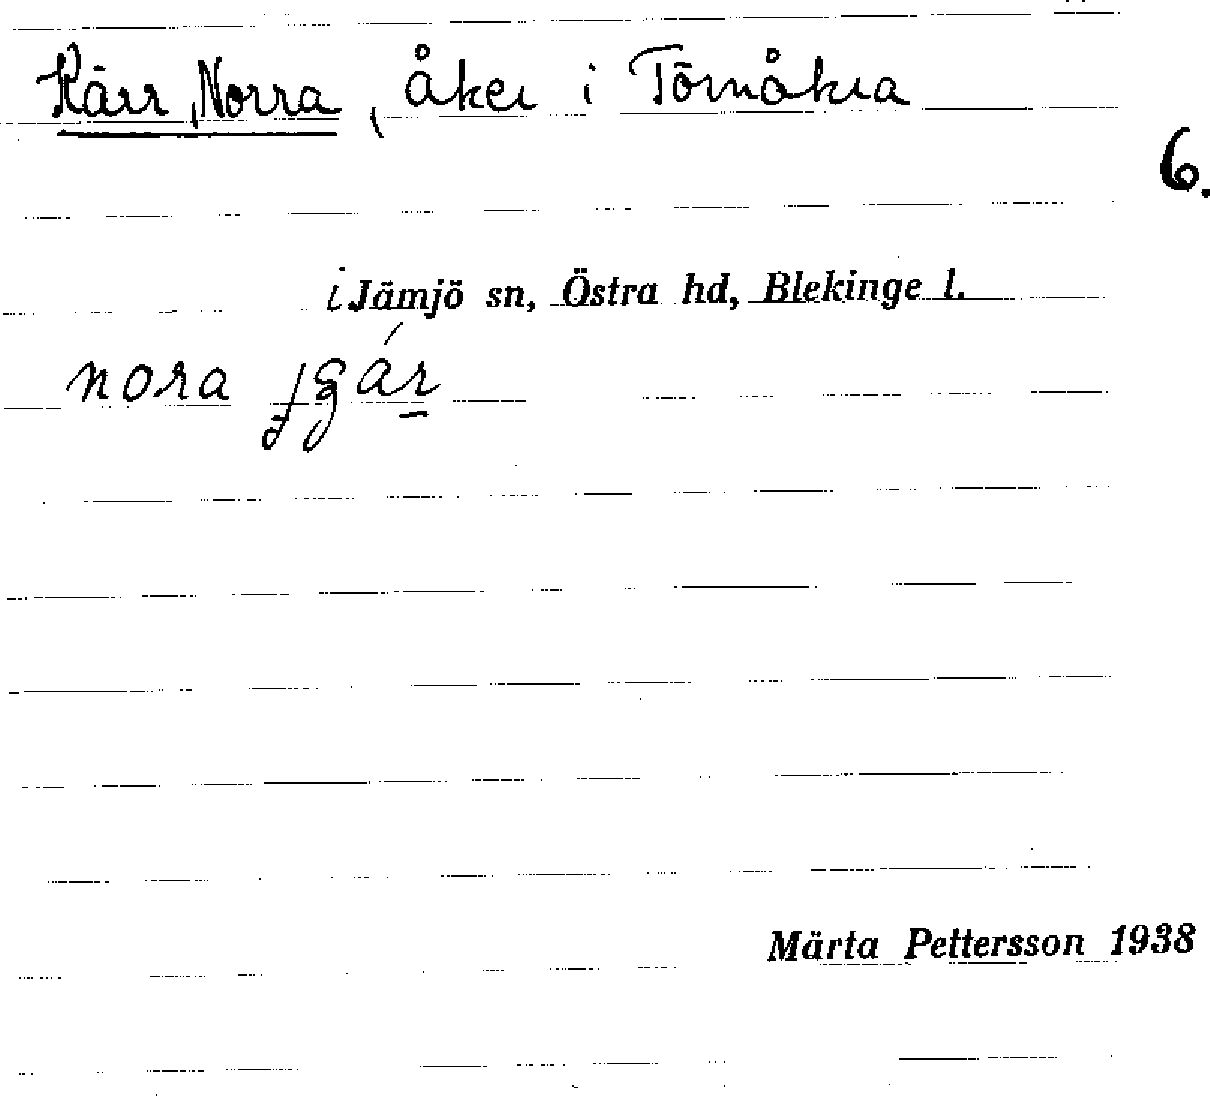 Kärr, Norra, åker i Törnåkra
6.
i Jämjö sn, Östra hd, Blekinge l.
nora
Märta Pettersson 1938